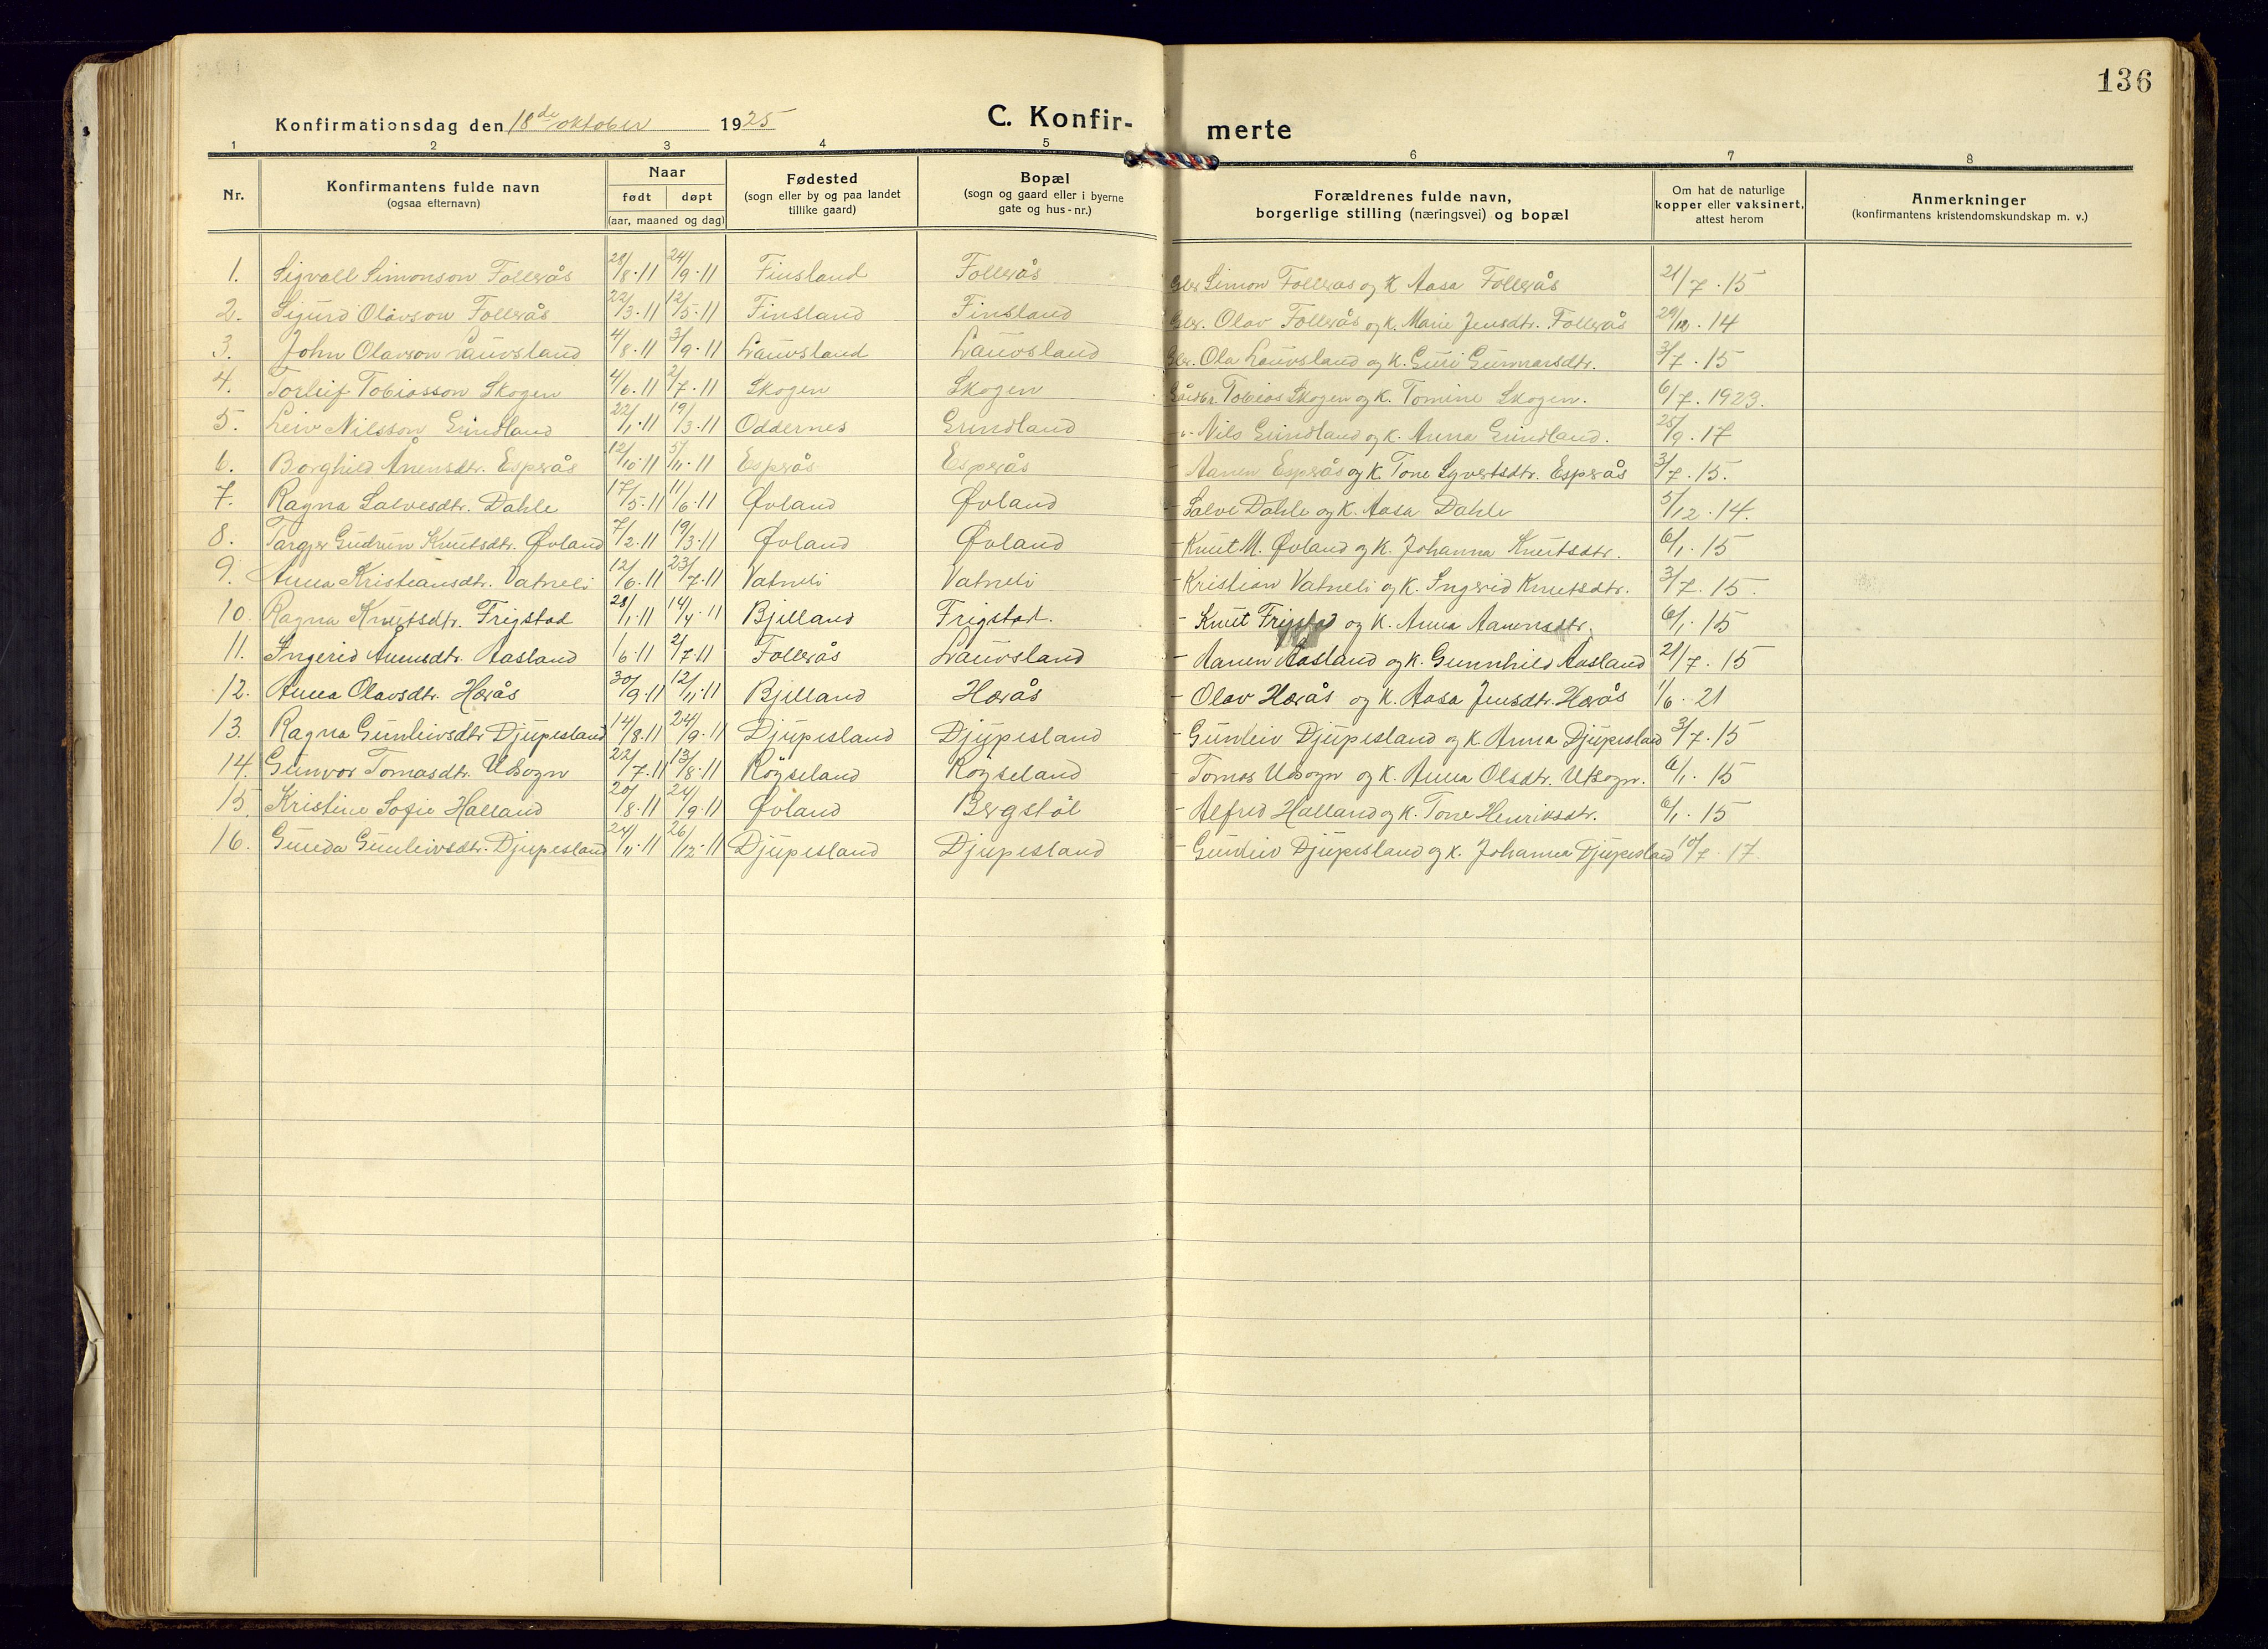 136
Konfirmationsdag den 18de oktober 1925
C. Konfir-
merte
1 2 3 4 5 6 7 8
Nr.
Konfirmantens fulde navn
(ogsaa efternavn)
Naar
født døpt
(aar, maaned og dag)
Fødested
(sogn eller by og paa landet
tillike gaard)
Bopæl
(sogn og gaard eller i byerne
gate og hus-nr.)
Forældrenes fulde navn,
borgerlige stilling (næringsvei) og bopæl
Om hat de naturlige
kopper eller vaksinert,
attest herom
Anmerkninger
(konfirmantens kristendomskundskap m. v.)
1. Sigvall Simonson Follerås 28/8.11 24/9.11 Finsland Follerås Gbr. Simon Follerås og K. Aasa Follerås 21/7.15
2. Sigurd Olavson Follerås 22/3.11 12/5.11 Finsland Finsland Gbr. Olav Follerås og K. Marie Jensdtr. Follerås 29/12.14
3. John Olavson Lauvsland 4/8.11 3/9.11 Lauvsland Lauvsland Gbr. Ola Lauvsland og K. Guri Gunnarsdtr. 3/7.15
4. Torleif Tobiasson Skogen 4/6.11 2/7.11 Skogen Skogen Gårdbr. Tobias Skogen og K. Tomine Skogen. 6/7.1923.
5. Leiv Nilsson Grindland 22/1.11 19/3.11 Oddernes Grindland -"- Nils Grindland og K. Anna Grindland. 25/9.17
6. Borghild Ånensdtr. Esperås 12/10.11 5/11.11 Esperås Esperås - Aanen Esperås og K. Tone Syvertsdtr. Esperås 3/7.15.
7. Ragna Salvesdtr. Dahle 17/5.11 11/6.11 Øvland Øvland - Salve Dahle og K. Aasa Dahle 5/12.14.
8. Targjer Gudrun Knutsdtr. Øvland 7/2.11 19/3.11 Øvland Øvland - Knut M. Øvland og K. Johanna Knutsdtr. 6/1.15
9. Anna Kristiansdtr. Vatneli 12/6.11 23/7.11 Vatneli Vatneli - Kristian Vatneli og K. Ingerid Knutsdtr. 3/7.15.
10. Ragna Knutsdtr. Frigstad 28/1.11 14/4.11 Bjelland Frigstad. - Knut Frigstad og K. Anna Aanensdtr. 6/1.15
11. Ingerid Ånensdtr. Aasland 1/6.11 2/7.11 Follerås Lauvsland - Aanen Aasland og K. Gunnhild Aasland 21/7.15
12. Anna Olavsdtr. Herås 30/9.11 12/11.11 Bjelland Herås - Olav Herås og K. Aasa Jensdtr. Herås 1/6.21
13. Ragna Gunleivsdtr Djupesland 14/8.11 24/9.11 Djupesland Djupesland - Gunleiv Djupesland og K. Anna Djupesland 3/7.15
14. Gunvor Tomasdtr. Utsogn 22/7.11 13/8.11 Röyseland Röyseland - Tomas Utsogn og K. Anna Olsdtr. Utsogn. 6/1.15
15. Kristine Sofie Halland 20/8.11 24/9.11 Øvland Bergstøl - Alfred Halland og K. Tone Henriksdtr. 6/1.15
16. Gunda Gunleivsdtr. Djupesland 24/11.11 26/12.11 Djupesland Djupesland - Gunleiv Djupesland og K. Johanna Djupesland 10/7.17.